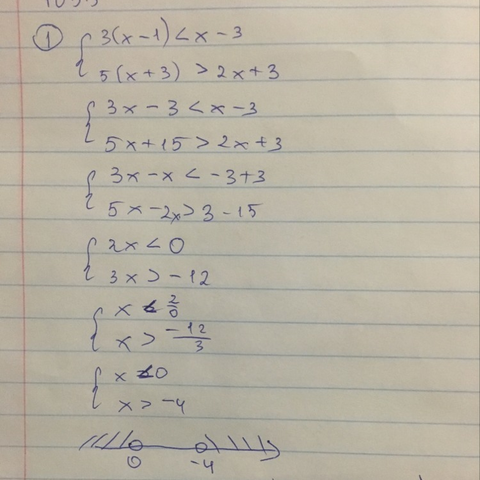 ① { 3(x-1) < x-3
5(x+3) > 2x+3
{ 3x-3 < x-3
5x+15 > 2x+3
{ 3x-x < -3+3
5x-2x > 3-15
{ 2x < 0
3x > -12
{ x < 2/0
x > -12/3
{ x < 0
x > -4
0 -4